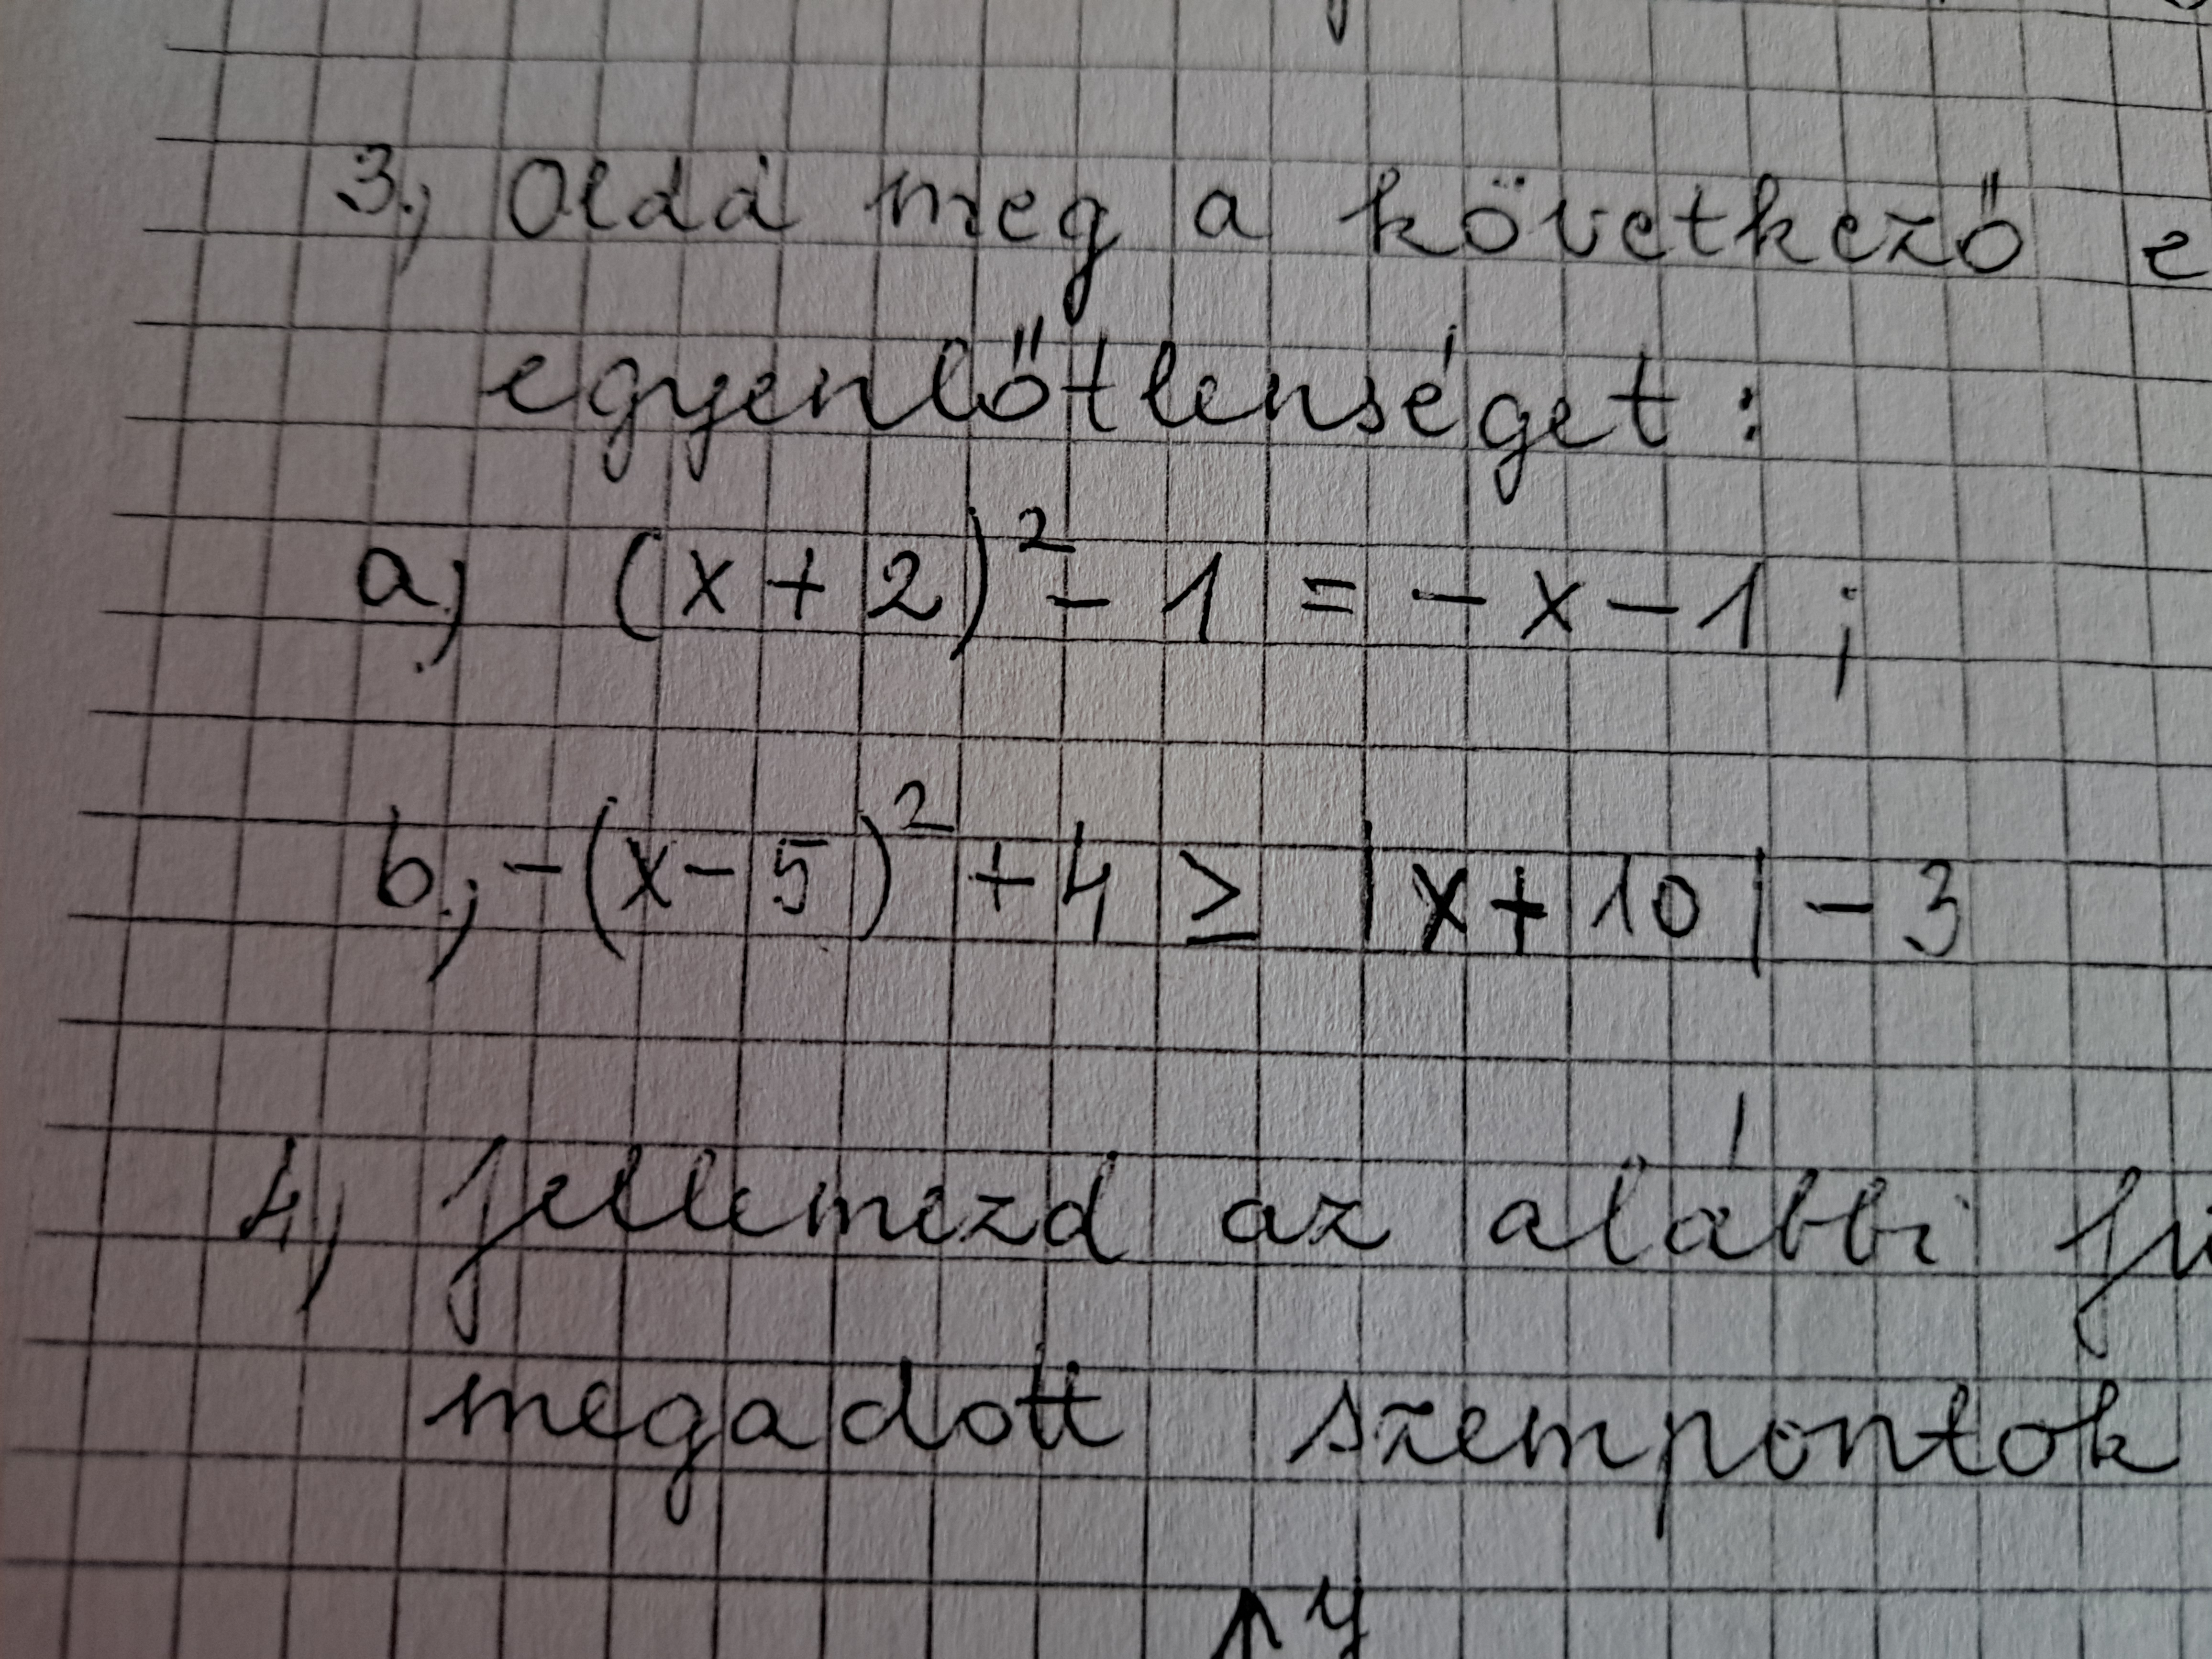 3.) Oldd meg a következő e
egyenlőtlenséget :
a.) (x+2)² - 1 = -x-1 ;
b.) -(x-5)² + 4 ≥ |x+10| - 3
4.) Jellemezd az alábbi fü
megadott szempontok
y